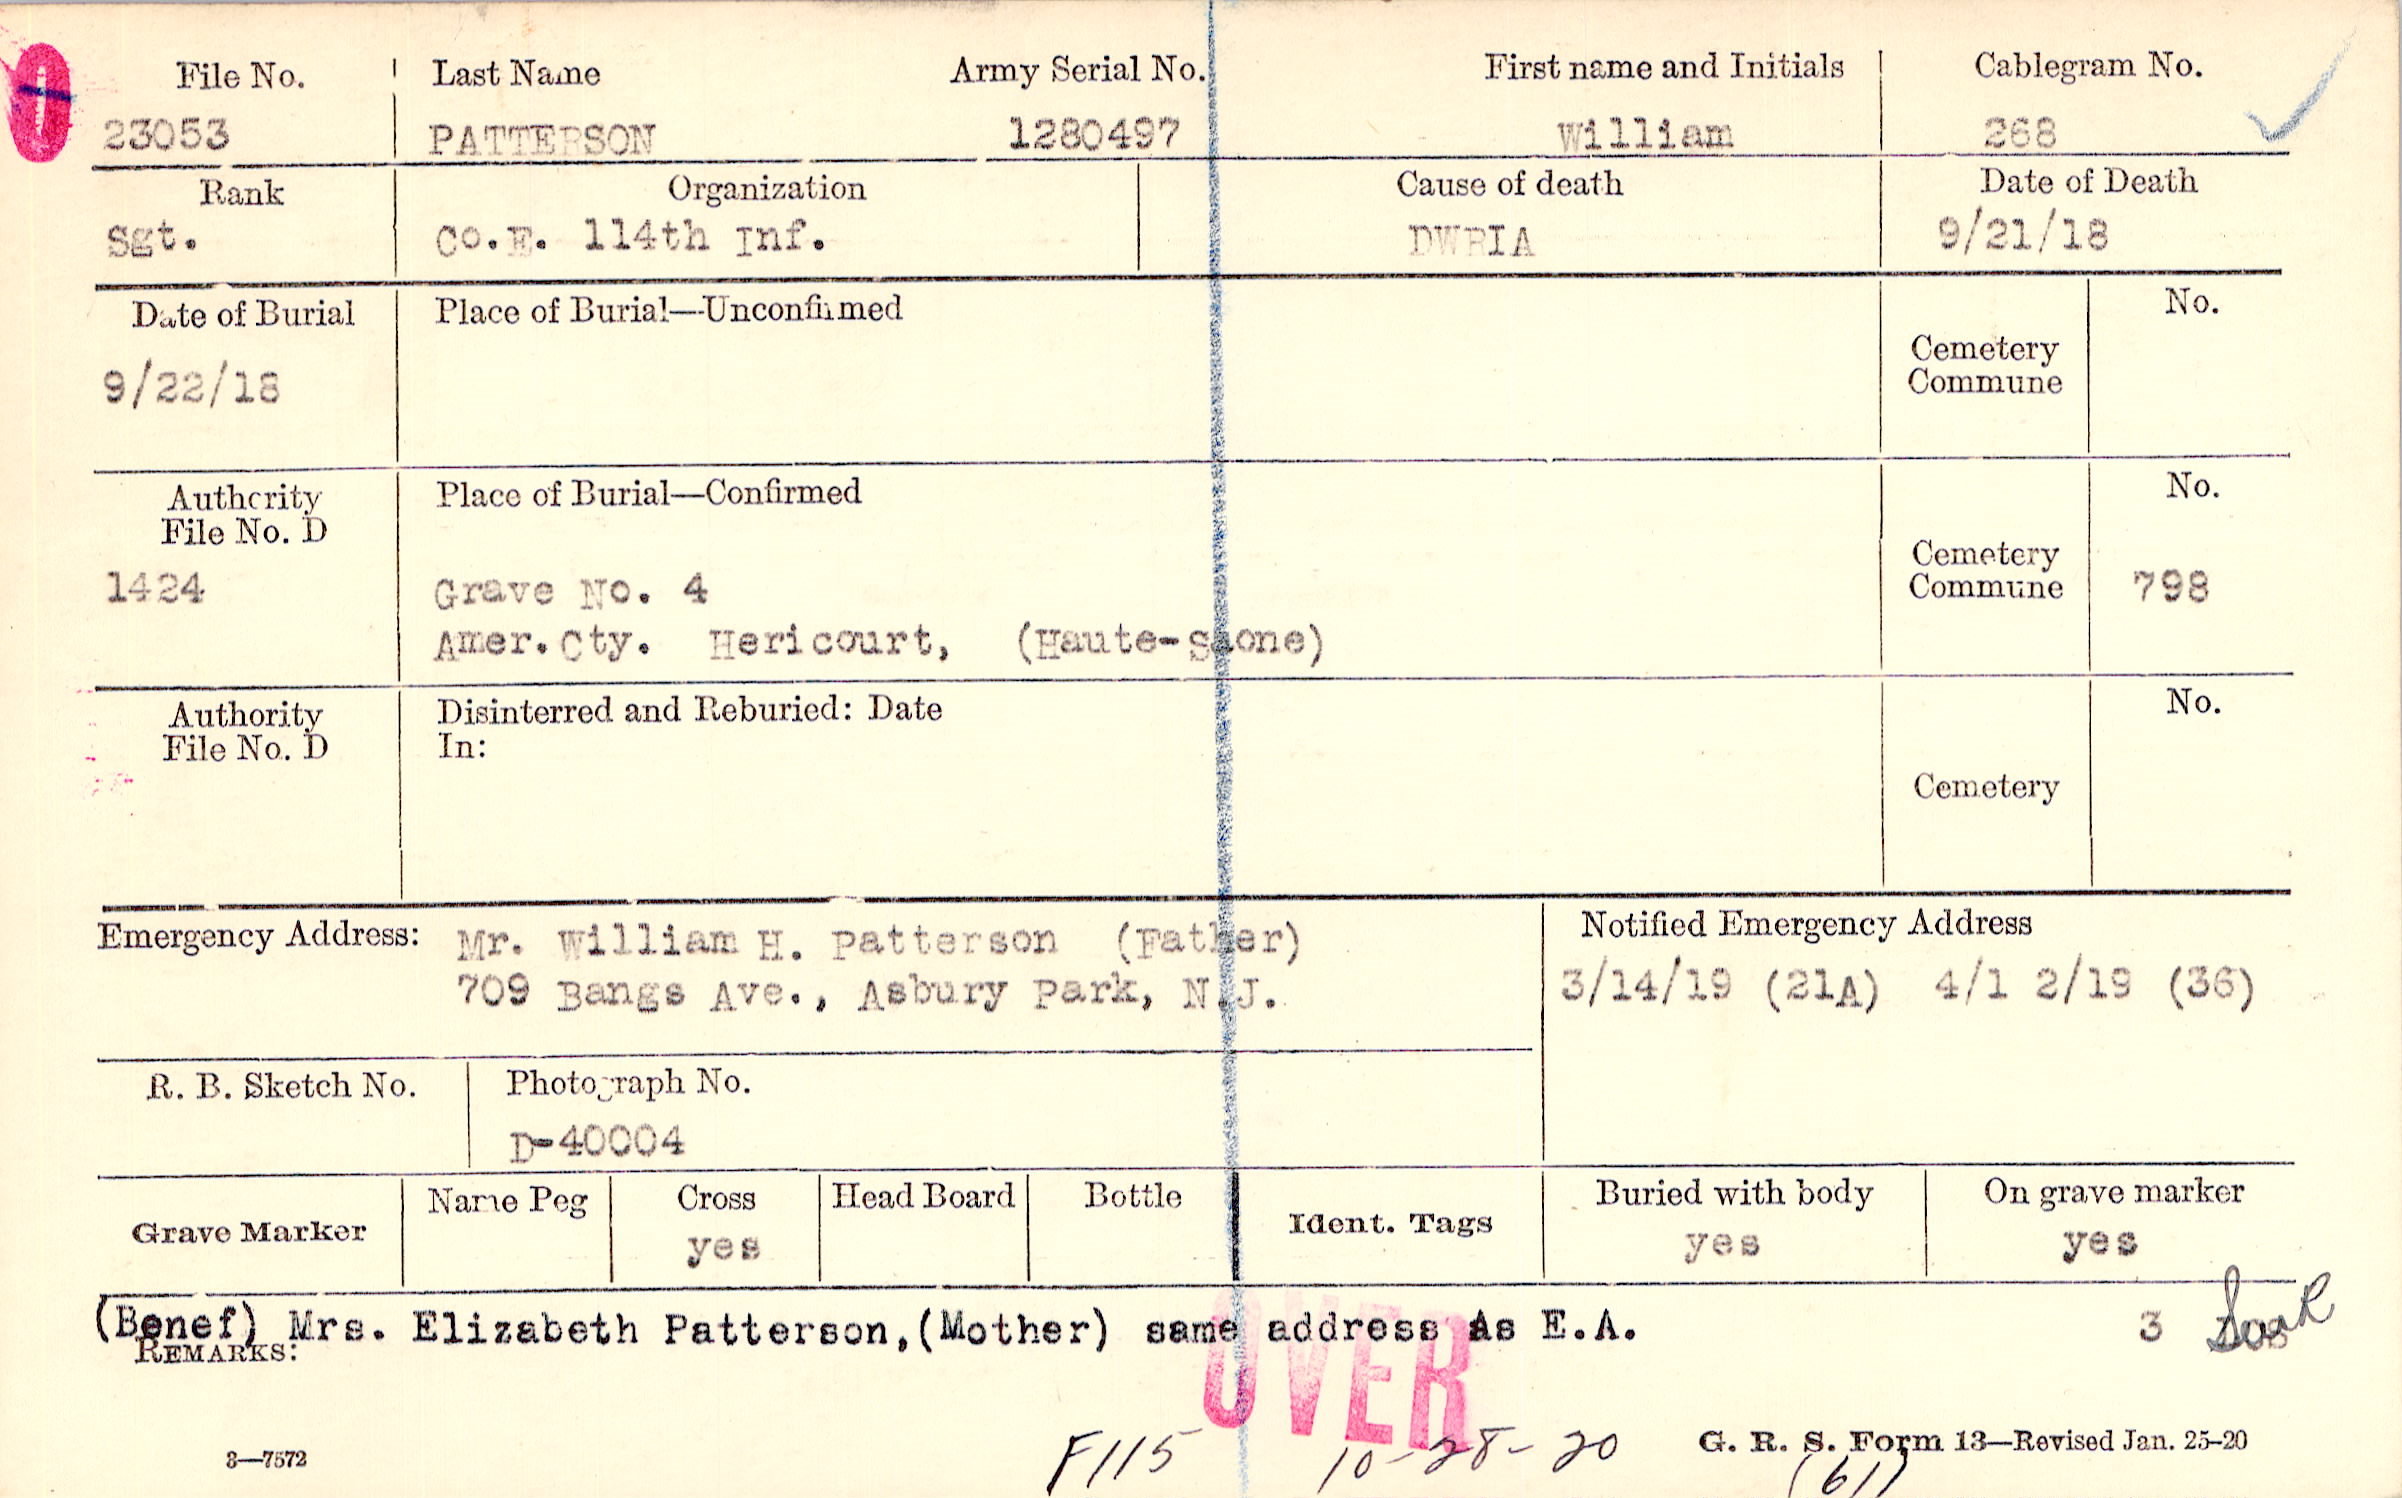 File No. Last Name Army Serial No. First name and Initials Cablegram No.
23053 PATTERSON 1280497 William 268
Rank Organization Cause of death Date of Death
Sgt. Co.E. 114th Inf. DWRIA 9/21/18
Date of Burial Place of Burial—Unconfirmed No.
Cemetery
Commune
9/22/18
Authority Place of Burial—Confirmed No.
File No. D
Cemetery
1424 Grave No. 4 Commune 798
Amer.Cty. Hericourt, (Haute-Saone)
Authority Disinterred and Reburied: Date No.
File No. D In:
Cemetery
Emergency Address: Mr. William H. Patterson (Father) Notified Emergency Address
709 Bangs Ave., Asbury Park, N.J. 3/14/19 (21A) 4/1 2/19 (36)
R. B. Sketch No. Photograph No.
D-40004
Grave Marker Name Peg Cross Head Board Bottle Ident. Tags Buried with body On grave marker
yes yes yes
(Benef) Mrs. Elizabeth Patterson,(Mother) same address As E.A. 3
REMARKS:
OVER
3—7572 F115 10-28-20 G. R. S. Form 13—Revised Jan. 25-20
(61)